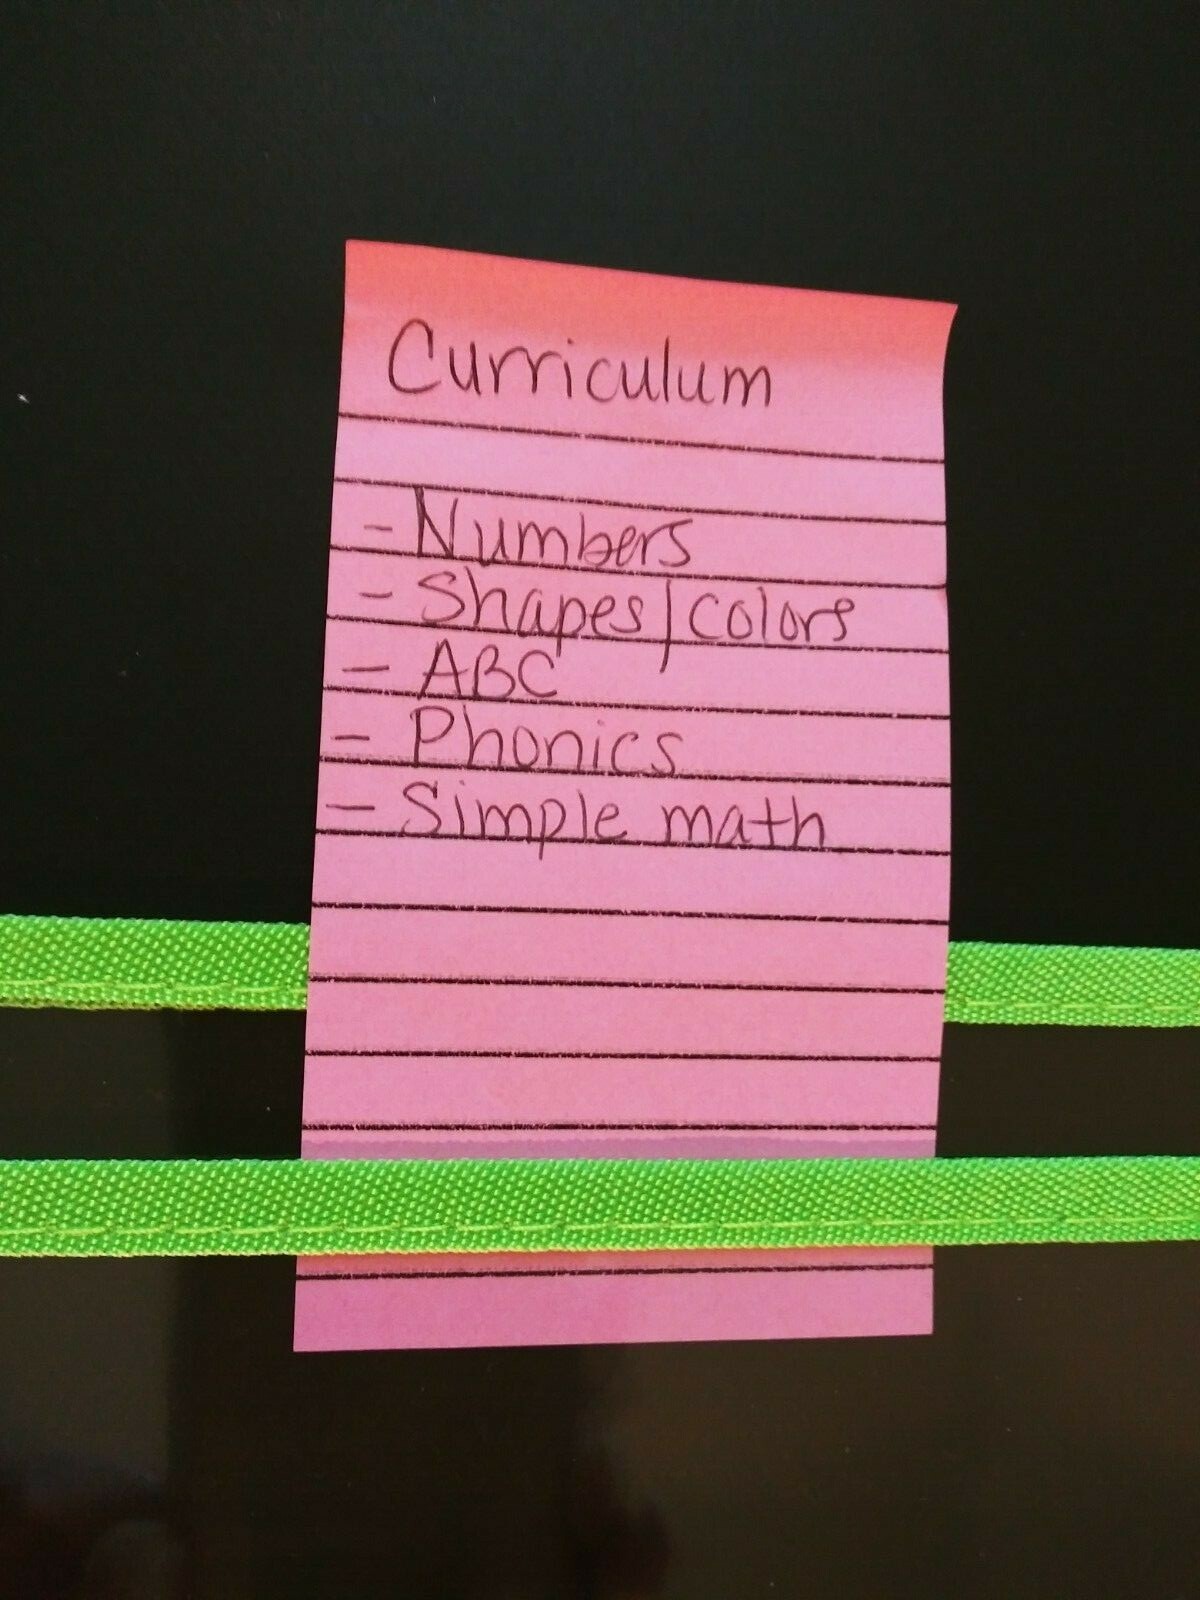 Curriculum
- Numbers
- Shapes/colors
- ABC
- Phonics
- Simple math